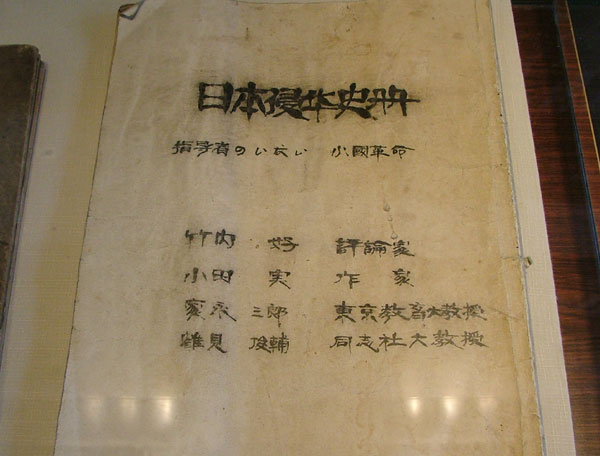 日本侵华史册
指导者のいない 小國革命
竹内 好 評論家
小田 実 作家
家永 三郎 東京教育大教授
鶴見 俊輔 同志社大教授